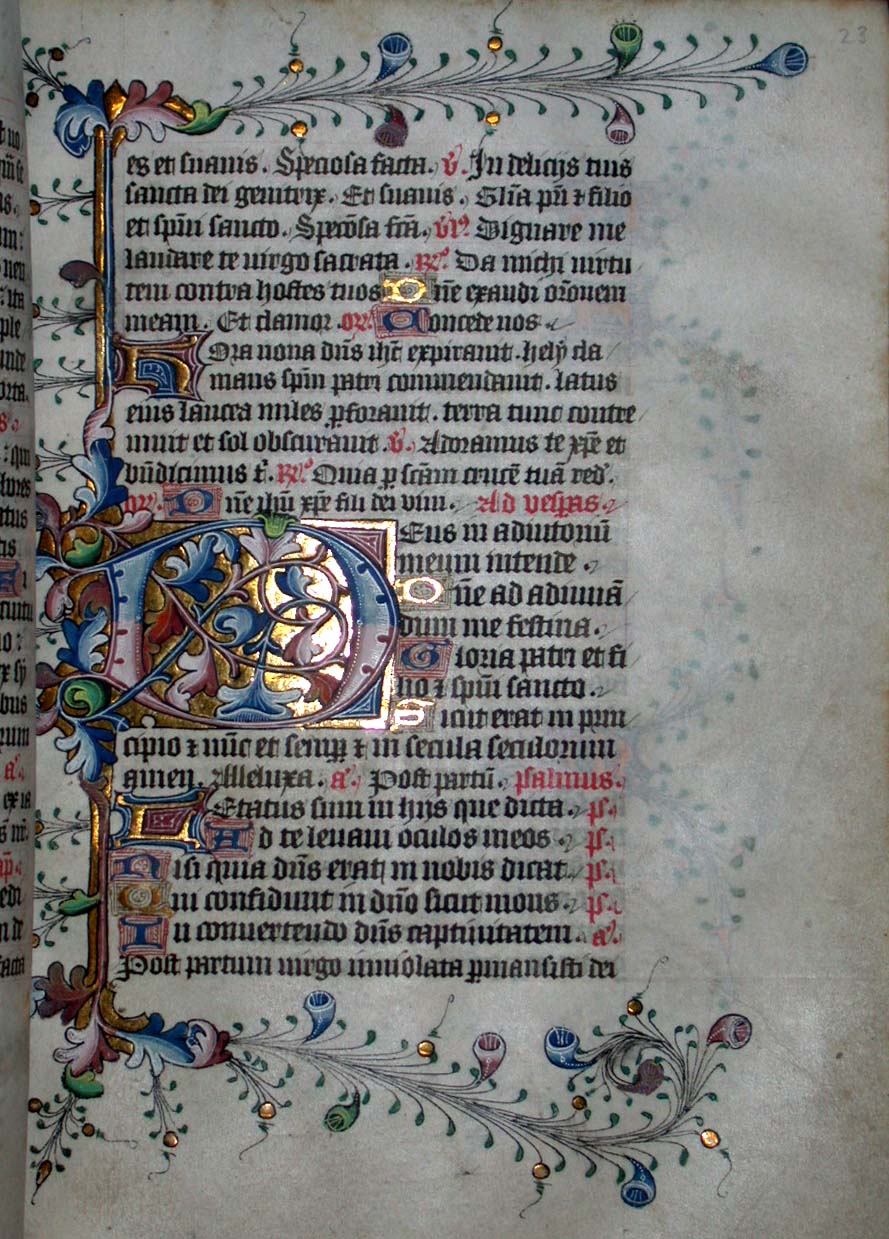 23
es et suauis. Speciosa facta. v̄. In delicijs tuis
sancta dei genitrix. Et suauis. Gl̄ia pr̄i ⁊ filio
et sp̄ui sancto. Spec̄osa fc̄a. Dignare me
laudare te uirgo sacrata. R̄. Da michi uirtu
tem contra hostes tuos Dn̄e exaudi or̄onem
meam. Et clamor. or̄. Concede nos
Hora nona dn̄s ih̄c expirauit. hely cla
mans sp̄m patri commendauit. latus
eius lancea miles ꝑforauit. terra tunc contre
muit et sol obscurauit. v̄. Adoramus te xp̄e et
bn̄dicimus t̄. R̄. Quia ꝑ sc̄am crucē tuā red̄.
or̄. Dn̄e ih̄u xp̄e fili dei viui. Ad vesp̄as.
Deus in adiutoriū
meum intende.
Dn̄e ad adiuuā
dum me festina.
Gloria patri et fi
lio ⁊ sp̄ui sancto.
Sicut erat in prin
cipio ⁊ nūc et semꝑ ⁊ in secula seculorum
amen. Alleluxa. a̅. Post partū. psalmus.
Letatus sum in hijs que dicta. ps.
Ad te leuaui oculos meos. ps.
Nisi quia dn̄s erat in nobis dicat. ps.
Qui confidunt in dn̄o sicut mons. ps.
In conuertendo dn̄s captiuitatem. a̅.
Post partum uirgo inuiolata ꝑmansisti dei